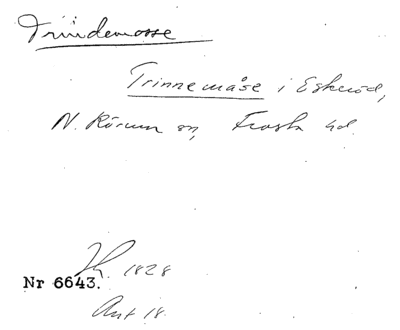 Trindemosse
Trinnemåse i Eskeröd,
N. Rörum sn, Frosta hd.
Th. 1828
Nr 6643.
Ant 18